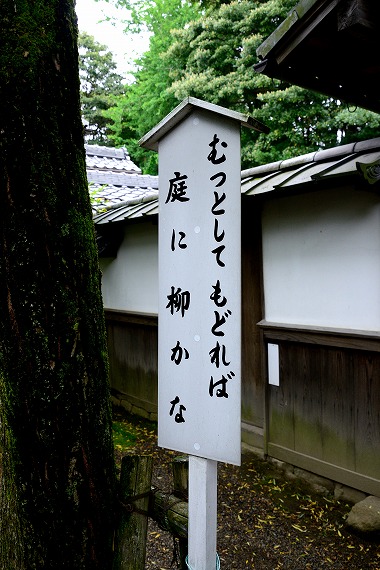 むっとして もどれば
庭に柳かな